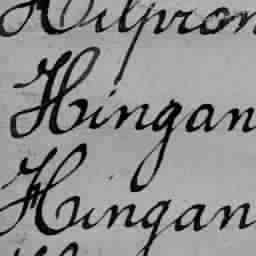 Hilpron
Hingan
Hingan